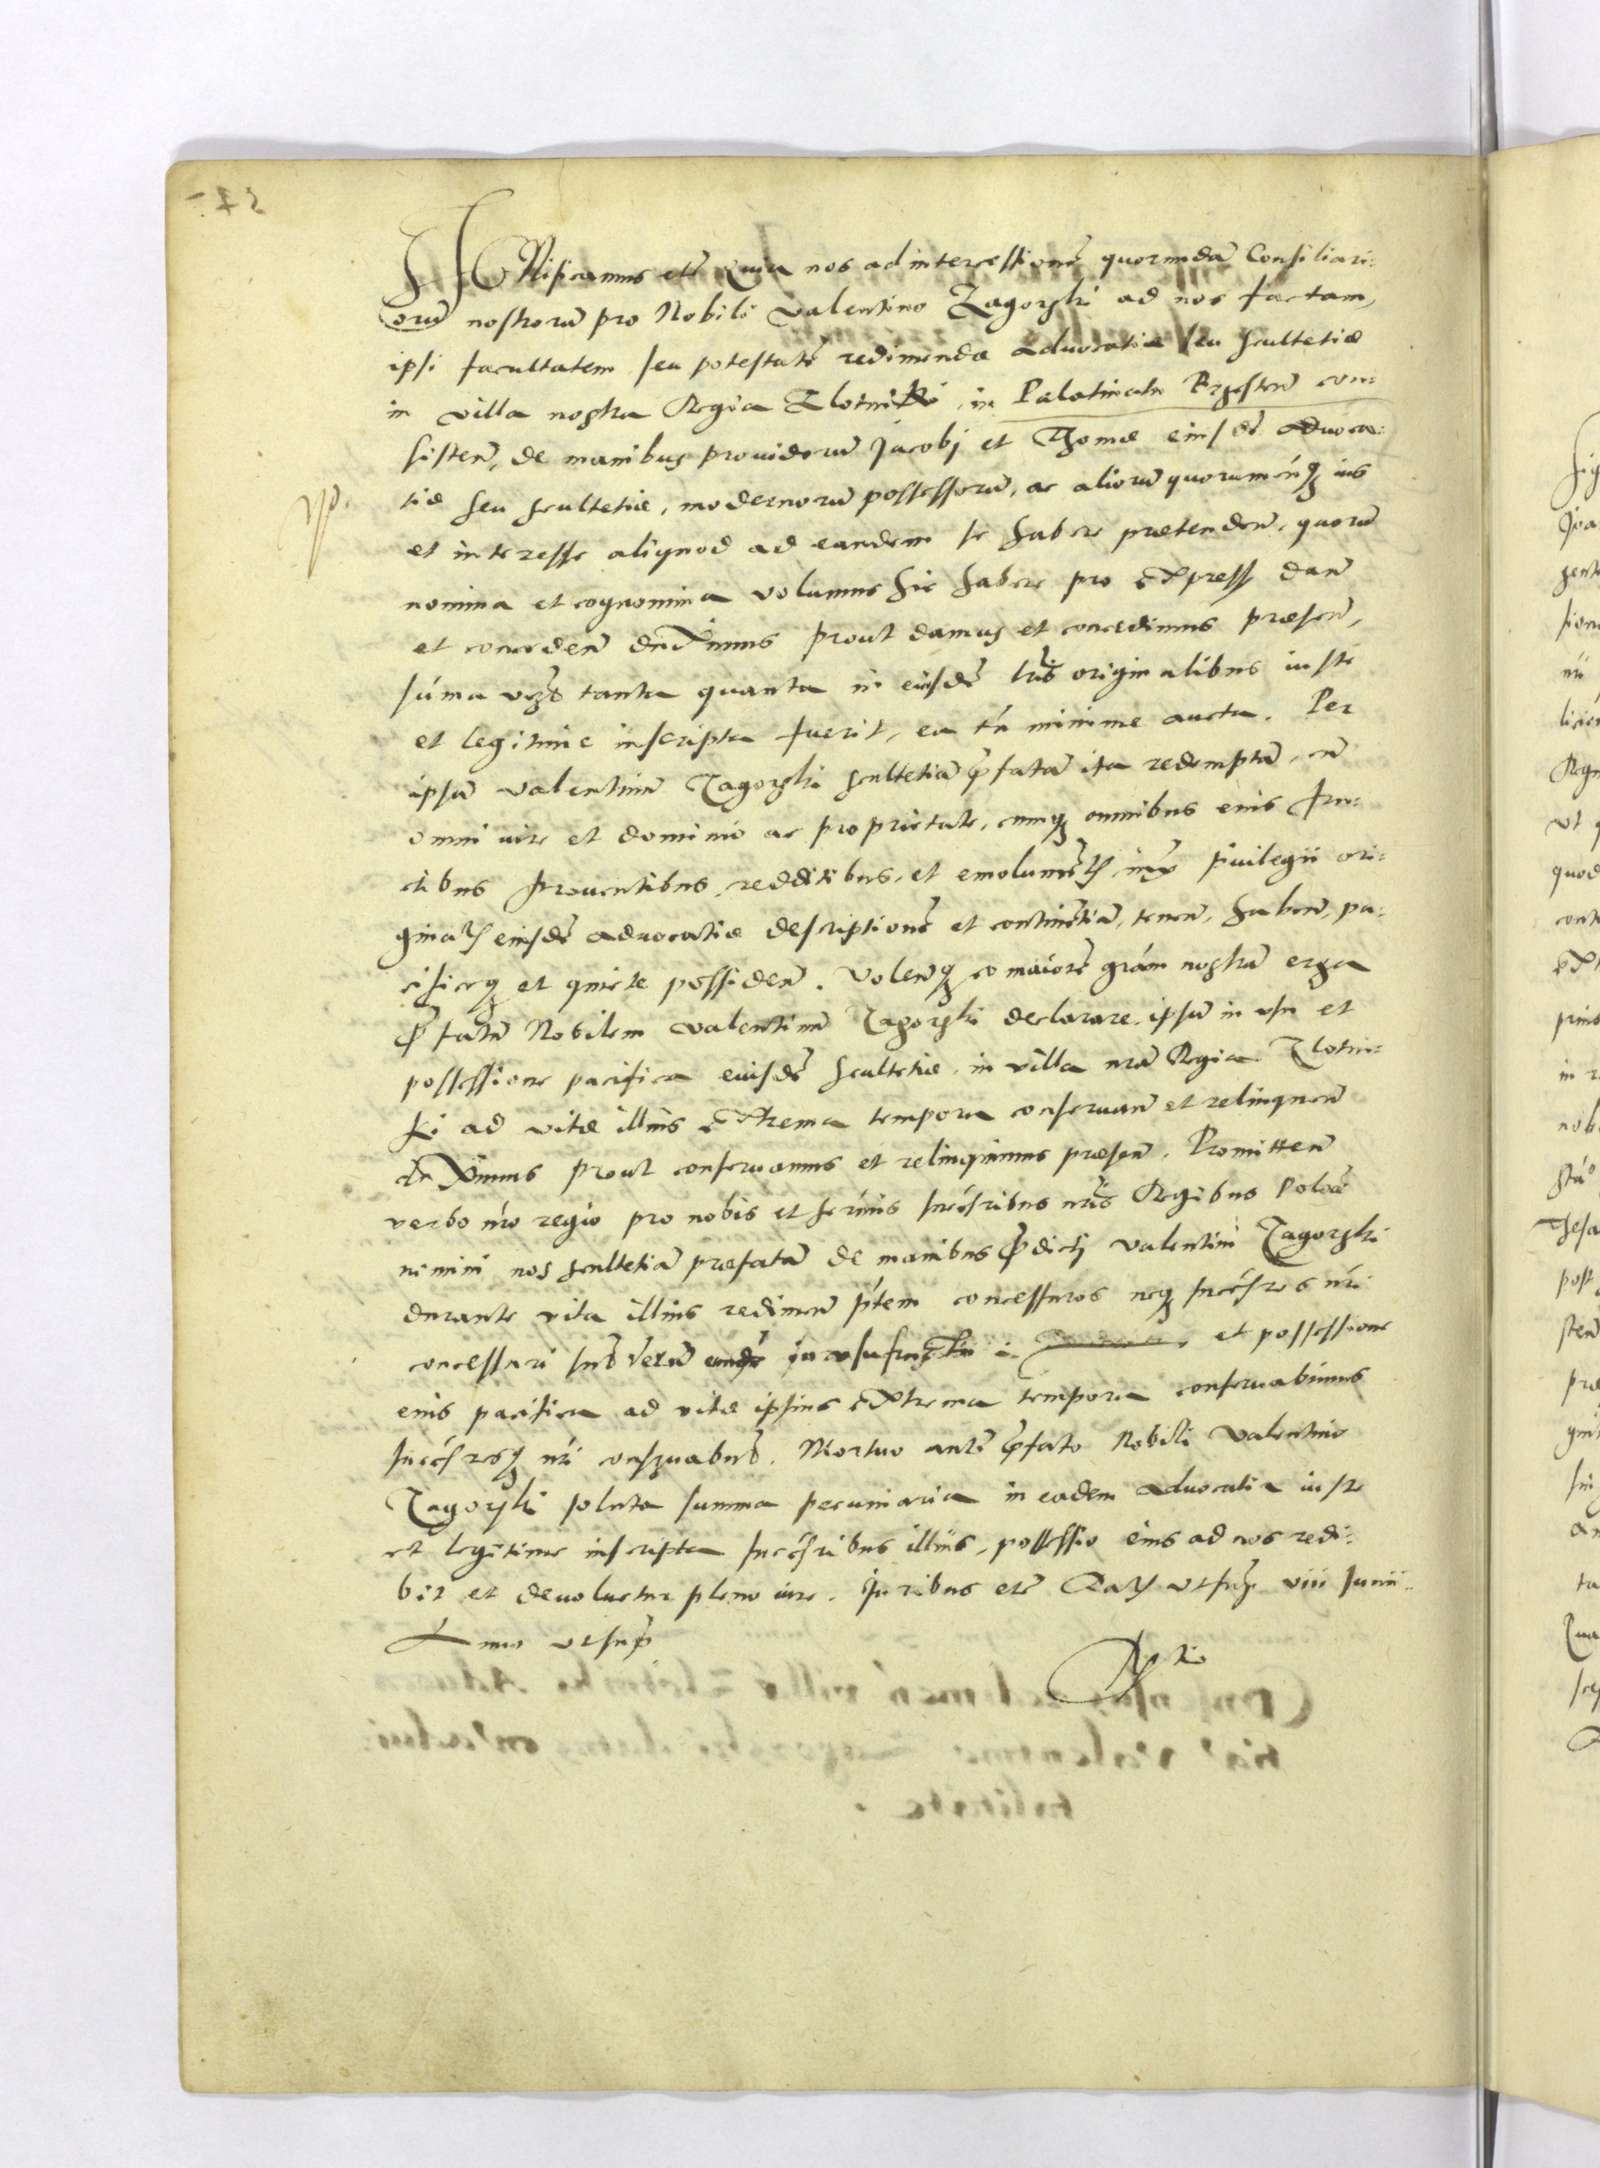 Significamus etc Quia nos ad intercessionē quorundā Consiliari:
orū nostrorū pro Nobili Valentino Zagorski ad nos factam,
ipsi facultatem seu potestatē redimendæ aduocatiæ seu scultetiæ
in villa nostra Regia Zlotniki, in Palatinatu Brzesteñ con:
sisteñ, de manibus prouidorū Jacobj et Thomæ eiusdē aduoca:
tiæ seu scultetiæ, modernorū possessorū, ac aliorū quorumcūqȝ ius
et interesse aliquod ad eandem se habere prætendeñ, quorū
nomina et cognomina volumus hic habere pro express dañ
et concedeñ duximus prout damus et concedimus præseñ,
suma vero tanta quanta in eiusdē lris originalibus iuste
et legitime inscripta fuerit, ea tñ minime aucta. Per
ipsū Valentinū Zagorski scultetiā p̄fatā ita redemptā, cū
omni iure et dominio ac proprietate, cumqȝ omnibus eius fru:
ctibus prouentibus, redditibus, et emolumētis iuxta priuilegii ori:
ginalis eiusdē aduocatiæ descriptionē et continētiā, teneñ, habeñ, pa:
cificeqȝ et quiete possideñ. Voleñqȝ eo maiorē grām nostrā erga
p̄fatū Nobilem Valentinū Zagorski declarare, ipsū in vsu et
possessione pacifica eiusdē scultetiæ, in villa nrā Regia Zlotni:
ki ad vitæ illius extrema tempora conseruañ et relinqueñ
duximus prout conseruamus et relinquimus præseñ. Promitteñ
verbo nro regio pro nobis et serēnis succēsribus nris Regibus Poloæ
nemini nos scultetiā præfatā de manibus p̄dicti Valentini Zagorski
durante vita illius redimeñ ptem concessuros neqȝ succēsres nri
concessuri sunt Verū in et possessione
eius pacifica ad vitæ ipsius extrema tempora conseruabimus
succēsresqȝ nri conseruabunt. Mortuo autē p̄fato Nobili Valentino
Zagorski soluta summa pecuniaria in eadem aduocatia iuste
et legitime inscripta succēsribus illius, possessio eius ad nos redi:
bit et deuoluetur pleno iure. Juribus etc Datȝ vt supra viii Junii
Anno vt supra